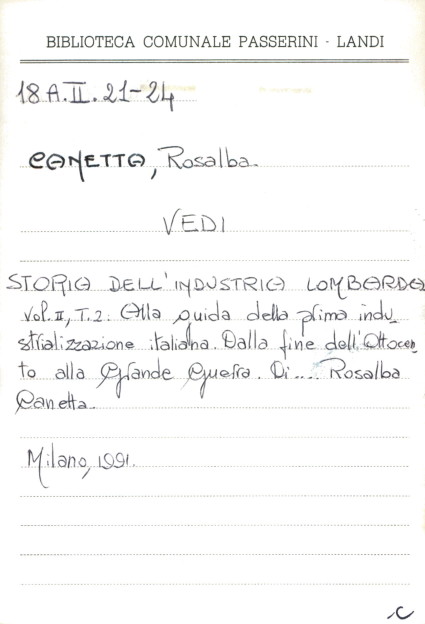 BIBLIOTECA COMUNALE PASSERINI - LANDI
18 A.II.21-24
CANETTA, Rosalba.
VEDI
STORIA DELL'INDUSTRIA LOMBARDA
Vol. II, T.2. Alla guida della prima indu_
strializzazione italiana. Dalla fine dell'Ottocen
to alla Grande Guerra. Di.... Rosalba
Canetta.
Milano, 1991.